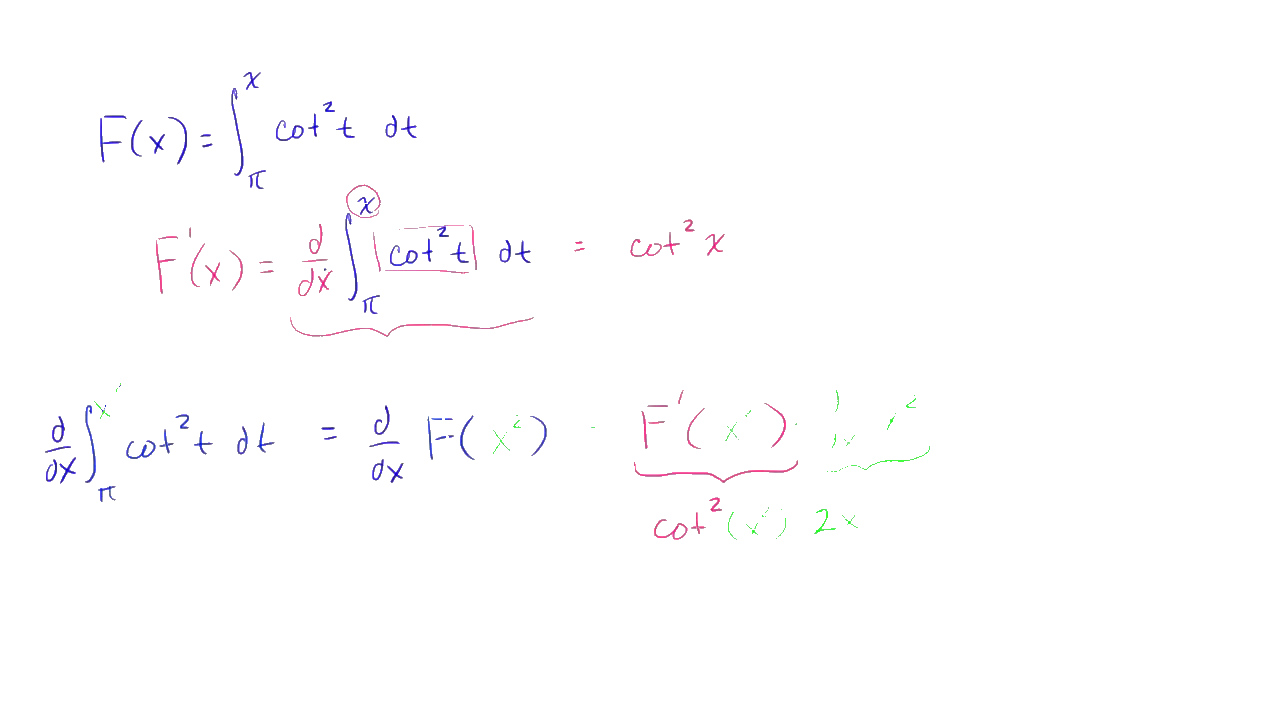 F(x) = ∫_π^x cot² t dt
F'(x) = d/dx ∫_π^x cot² t dt = cot² x
d/dx ∫_π^x² cot² t dt = d/dx F(x²) F'(x²) · x²
cot² (x²) 2x